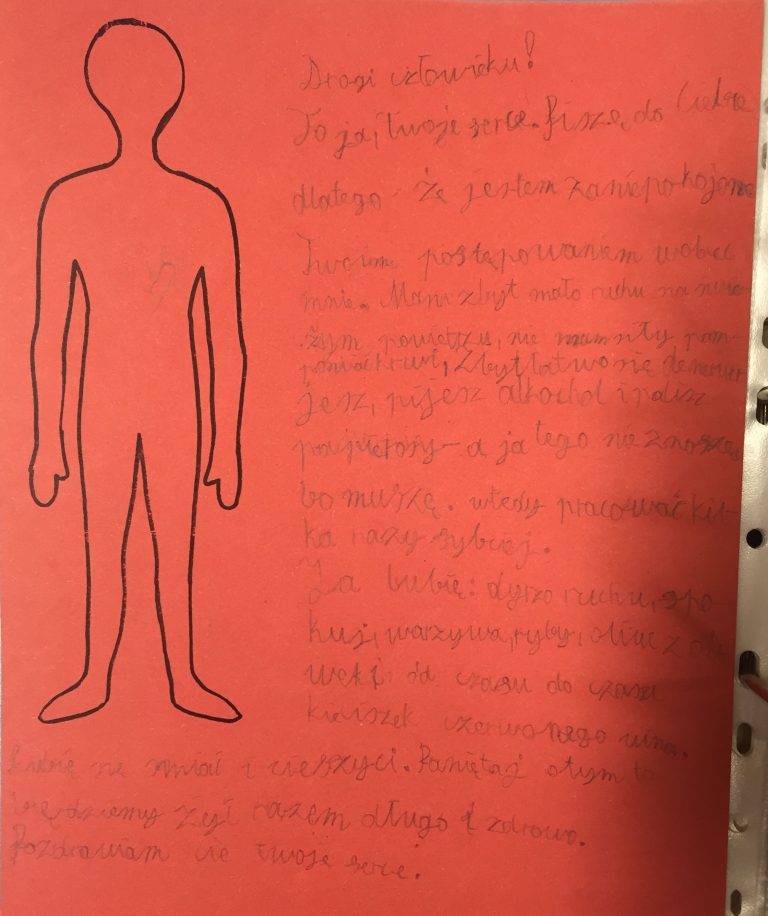 Drogi człowieku!
To ja, twoje serce. Piszę do Ciebie
dlatego że jestem zaniepokojone
Twoim postępowaniem wobec
mnie. Mam zbyt mało ruchu na świe-
żym powietrzu, nie mam siły pom-
pować krwi, Zbyt łatwo się denerwu
jesz, pijesz alkochol i palisz
papierosy - a ja tego nie znoszę
bo muszę. wtedy pracować kil-
ka razy sybciej.
Ja lubię: dyrzo ruchu, spo-
kuj, warzywa, ryby, oliwę z oli
wek i od czasu do czasu
kieliszek czerwonego wina.
Lubię się śmiać i cieszyci. Pamiętaj otym to
będziemy żyć razem długo i zdrowo.
Pozdrawiam cię twoje serce.